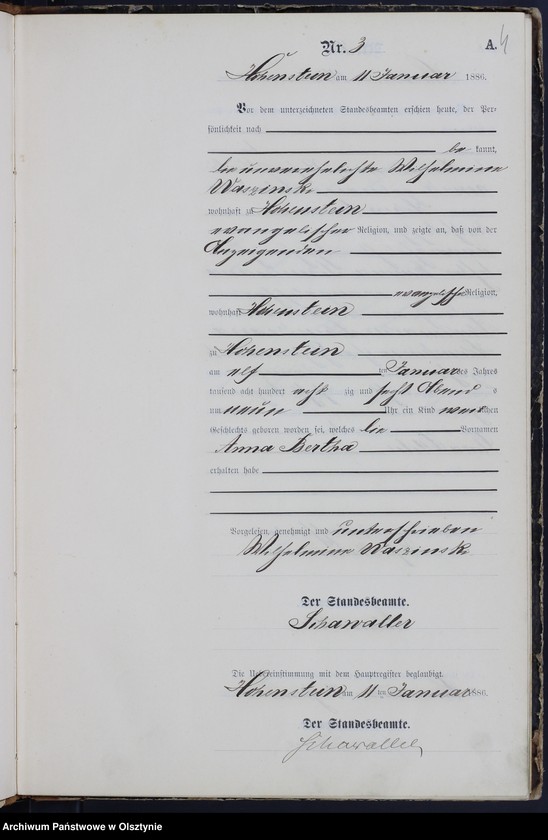 Nr. 3 A. 4
Hohenstein am 11 Januar 1886.
Vor dem unterzeichneten Standesbeamten erschien heute, der Per-
sönlichkeit nach
be kannt,
die unverehelichte Wilhelmine
Waszinski
wohnhaft zu Hohenstein
evangelischer Religion, und zeigte an, daß von der
Anzeigenden
evangelischer Religion,
wohnhaft Hohenstein
zu Hohenstein
am elf ten Januar des Jahres
tausend acht hundert acht zig und sechs Abend s
um neun Uhr ein Kind weiblichen
Geschlechts geboren worden sei, welches die Vornamen
Anna Bertha
erhalten habe
Vorgelesen, genehmigt und unterschrieben
Wilhelmine Waszinski
Der Standesbeamte.
Schawaller
Die Uebereinstimmung mit dem Hauptregister beglaubigt.
Hohenstein am 11 ten Januar 1886.
Der Standesbeamte.
Schawaller
Archiwum Państwowe w Olsztynie